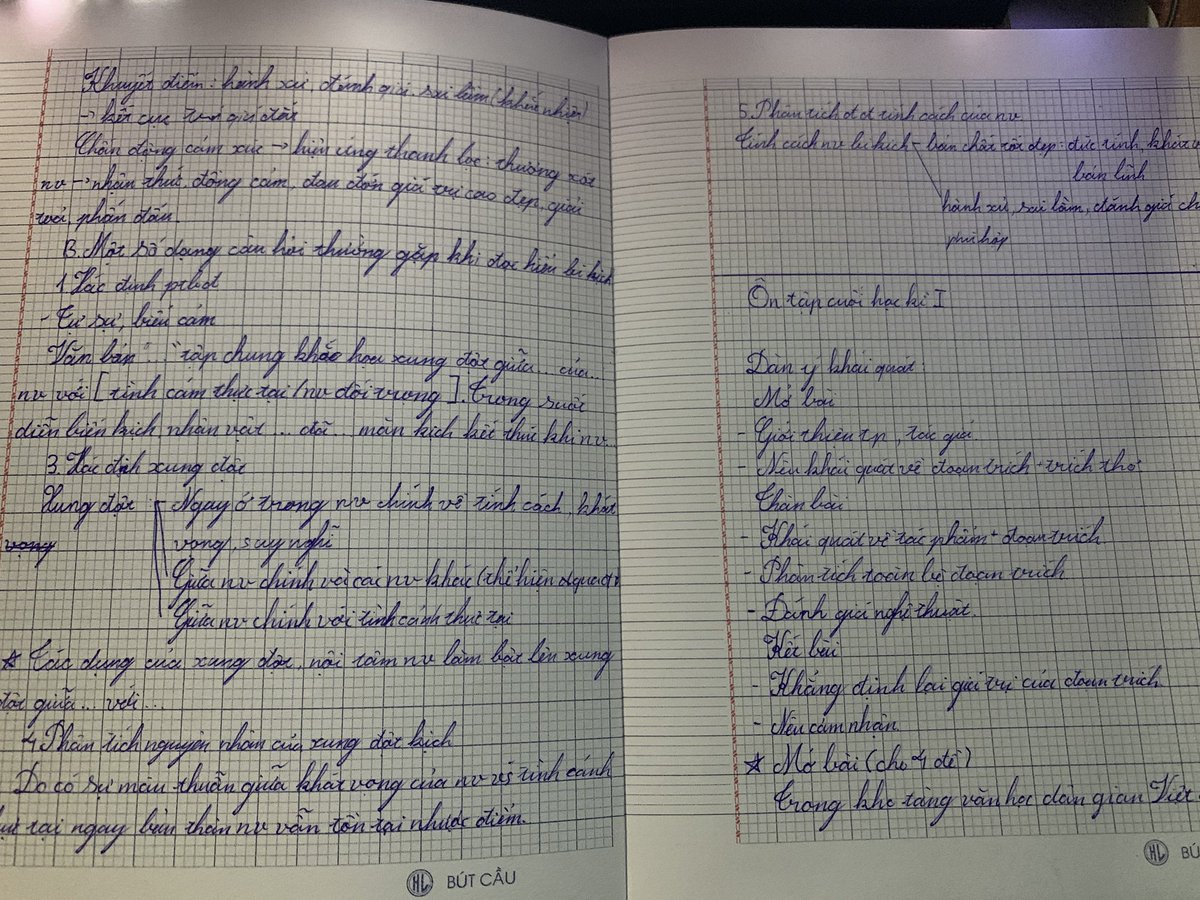 Khuyết điểm: hành xử, đánh giá, sai lầm (khiếm nhiện)
→ kết cục trả giá đắt
Chấn động cảm xúc → hiệu ứng thanh lọc: thương xót
nv → nhận thức, đồng cảm, đau đớn giá trị cao đẹp, giải
toả, phấn đấu.
B. Một số dạng câu hỏi thường gặp khi đọc hiểu bi kịch
1. Xác định ptbđ
- Tự sự, biểu cảm
Văn bản "..." tập chung khắc họa xung đột giữa... của...
nv với [tình cảm thực tại / nv đối trong]. Trong suốt
diễn biến kịch, nhân vật ... đã ... màn kịch kết thúc khi nv...
3. Xác định xung đột
Xung đột Ngay ở trong nv chính về tính cách, khát
vọng, suy nghĩ
Giữa nv chính với các nv khác (thể hiện
Giữa nv chính với tình cảnh thực tại
☆ Tác dụng của xung đột, nội tâm nv làm bật lên xung
đột giữa... với...
4. Phân tích nguyên nhân của xung đột kịch
Do có sự mâu thuẫn giữa khát vọng của nv với tình cảnh
thực tại ngay bản thân nv vẫn tồn tại nhược điểm.
HL BÚT CẦU
5. Phân tích đ đ tính cách của nv
Tính cách nv bi kịch - bản chất tốt đẹp: đức tính, khát v
bản lĩnh
hành xử, sai lầm, đánh giá ch
phù hợp
Ôn tập cuối học kì I
Dàn ý khái quát:
Mở bài
- Giới thiệu tp, tác giả
- Nêu khái quát về đoạn trích + trích thơ
Thân bài
- Khái quát về tác phẩm + đoạn trích
- Phân tích toàn bộ đoạn trích
- Đánh giá nghệ thuật.
Kết bài
- Khẳng định lại giá trị của đoạn trích
- Nêu cảm nhận.
☆ Mở bài (cho 4 đề)
Trong kho tàng văn học dân gian Việt
HL BÚ